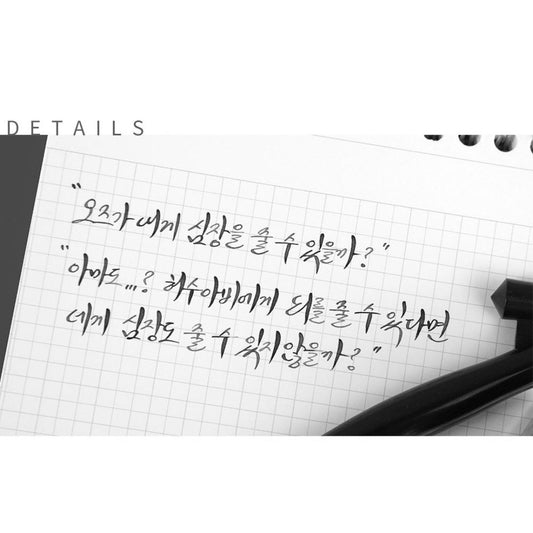 DETAILS
"오즈가 내게 심장을 줄 수 있을까?"
"아마도...? 허수아비에게 뇌를 줄 수 있다면
네게 심장도 줄 수 있지 않을까?"